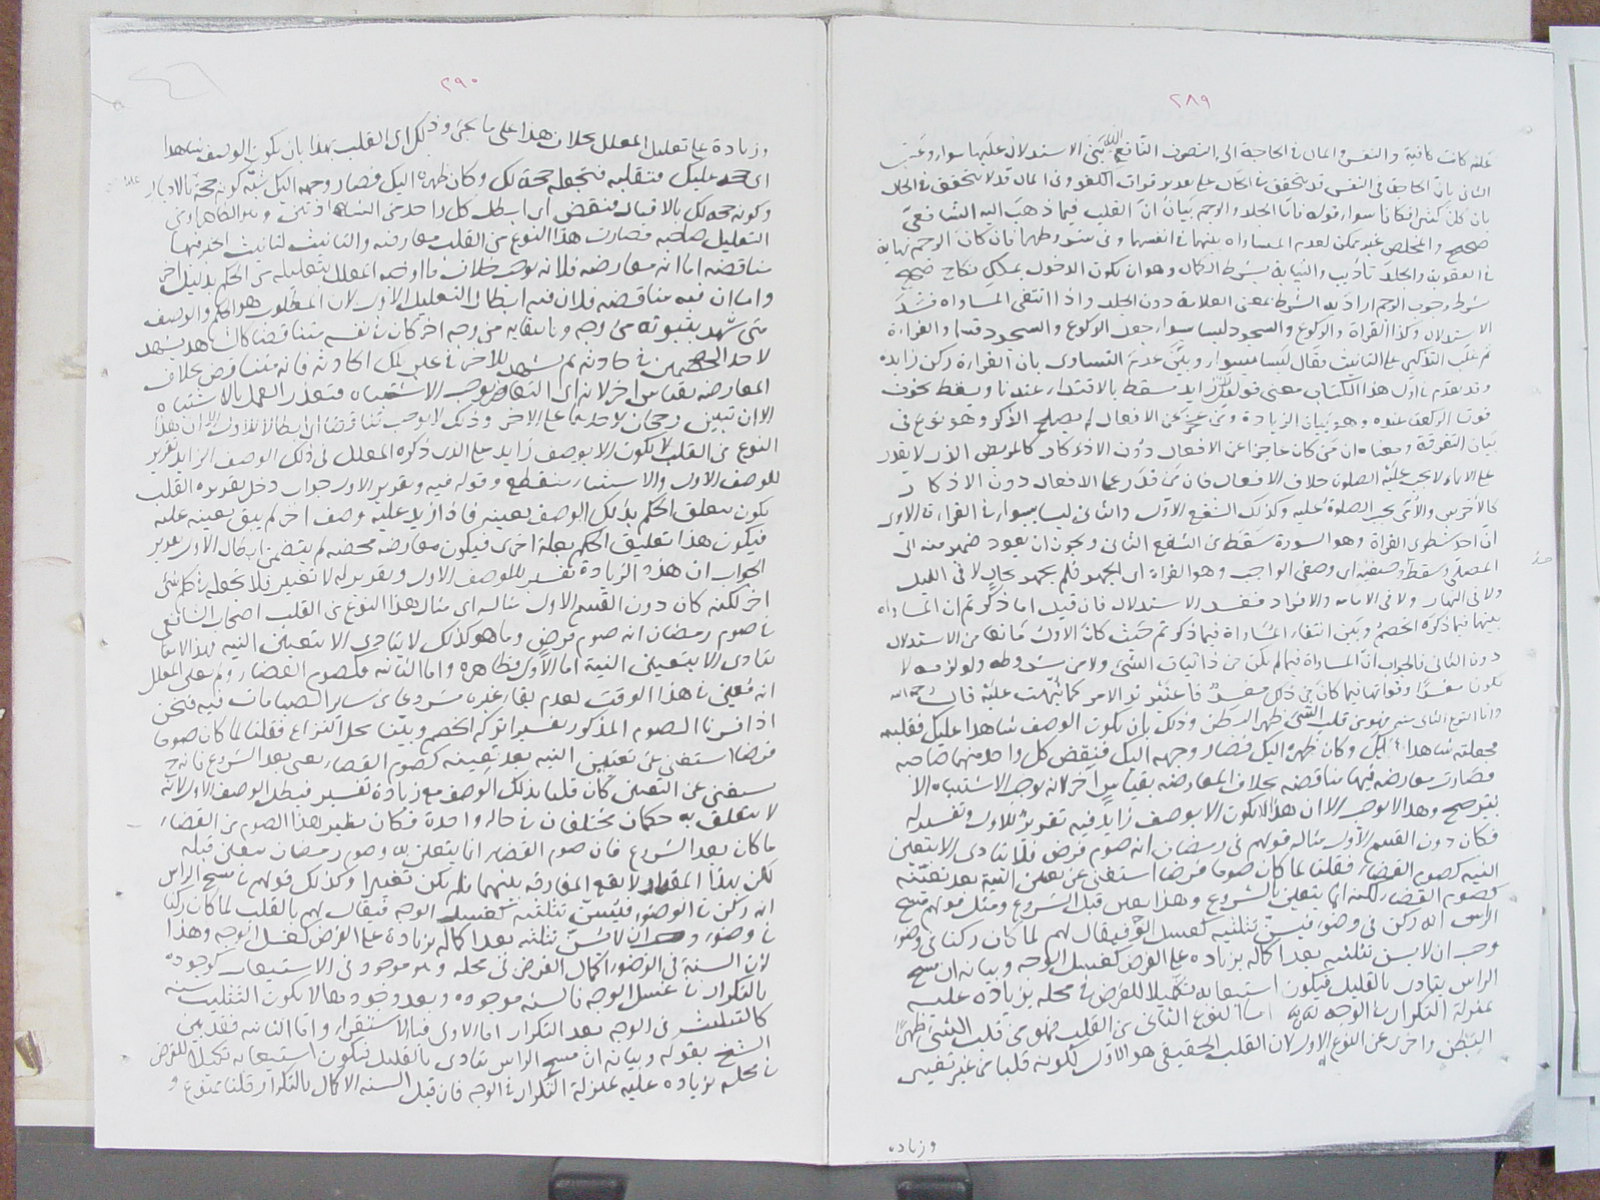 ٢٨٩
علته كانت كافية والنفس والمال في الحاجة الى التصرف النافع
الثاني بان الحاجة في النفس قد يتحقق في الحال على تقدير فوات الكفو وفي المال قد لا يتحقق في الحال
بان قلت كيف افكانا سوا قوله بانّ الجلد والرجم بيان انّ القلب فيما ذهب اليه الشافعي
صحيح والمخلص غير ممكن لعدم المساواة بينهما في انفسهما وفي شروطهما فان كان الرجم نهاية
في العقوبة والجلد تأديب والثيابة بشرط الكمال وهو ان يكون الدخول بملك نكاح صحيح
شرط وجوب الرجم اراد به الشرط بمعنى العلامة دون الجلد واذا انتفى المساواة فسد
الاستدلال وكذا القراة والركوع والسجود ليسا سوا جعل الركوع والسجود والقراءة
ثم غلب التذكير على التانيث وقال ليسا بسوا وبيّن عدم التساوى بان القراءة ركن زايد
وقد تقدم في اول هذا الكتاب معنى قوله زايد سقط بالاقتداء عندنا ويسقط بخوف
فوت الركعة عنده وهو بيان الزيادة ومن عجز عن الافعال لم يصلح الذكر وهو نوع في
بيان التفرقة ومعناه ان من كان عاجزا عن الافعال دون الاذكار كالمريض الذي لا يقدر
على الاداء لا يجب عليه الصلوة خلاف الافعال فان من قدر على الافعال دون الاذكار
كالاخرس والامي يجب الصلوة عليه وكذلك الشفع الاول والثاني ليسا بسوا في القراءة
ان احد شطرى القراة وهو السورة سقط في الشفع الثاني ويجوز ان يعود ضمير منه الى
المصلى وسقط وصفه اى وصفى الواجب وهو القراة اى الجهر فلم يجهر بحال لا في الليل
ولا في النهار ولا في الامامة والافراد ففسد الاستدلال فان قيل اما ذكر ثم ان المساواة
بينهما فيما ذكره الخصم وبيّن انتفاء المساواة فيما ذكر ثم حيث كان الاول مانعا من الاستدلال
دون الثاني فالجواب ان المساواة فيما لم يكن من ذاتيات الشي ولا من شروطه ولوازمه لا
يكون مفسدا وفواتها فيما كان من ذلك مفسد فاعتبر تر الامر كما نبهت عليه قال رحمه الله
واما النوع الثاني منه فهو من قلب الشي ظهر البطن وذلك بان يكون الوصف شاهدا عليك فقلبته
فجعلته شاهدا لك وكان ظهره اليك فصار وجهه اليك فنقض كل واحد منهما صاحبه
فصارت معارضة فيها مناقضة بخلاف المعارضة بقياس آخر لانه يوجب الاشتباه الا
بترجيح وهذا لا يوجب الا ان هذا لا يكون الا بوصف زايد فيه تقرير للاول وتفسير له
فكان دون القسم الاول مثاله قولهم في رمضان انه صوم فرض فلا يتادى الا بتعيين
النية كصوم القضاء فقلنا لما كان صوما فرضا استغنى عن تعيين النية بعد تعيّنه
كصوم القضاء لكنه انما يتعين بالشروع وهذا تعين قبل الشروع ومثل قولهم مسح
الراس انه ركن في وضوء فيسنّ تثليثه كغسل الوجه فيقال لهم لما كان ركنا في وضوء
وجب ان لا يسن تثليثه بعد اكماله بزيادة على الفرض كغسل الوجه وبيانه ان مسح
الراس يتادى بالقليل فيكون استيعابه تكميلا للفرض في محله بزيادة عليه
بمنزلة التكرار في الوجه اما النوع الثاني من القلب فهو من قلب الشي ظهرًا
البطن واخره عن النوع الاول لان القلب الحقيقي هو الاول لكونه قلبا من غير تغيير
وزياده
٢٩٠
وزيادة على تعليل المعلل بخلاف هذا على ما يجئ وذلك اى القلب بهذا بان يكون الوصف شاهدا
اى حجة عليك فتقلبه فتجعله حجة لك وكان ظهره اليك فصار وجهه اليك كونه حجة بالادبار
وكونه حجة لك بالاقبال فنقض اى ابطل كل واحد من
التعليل صاحبه فصارت هذا النوع من القلب معارضة والتانيث لتانيث الخبر فيها
مناقضة اما انه معارضة فلانه يوجب خلاف ما اوجبه المعلل بتعليله من الحكم بدليل اخر
واما ان فيه مناقضة فلان فيه ابطال التعليل الاول لان المطلوب هو الحكم والوصف
متى شهد بثبوته من وجه وبانتفايه من وجه اخر كان في نفسه متناقضا كالشاهد يشهد
لاحد الخصمين في حادثة ثم يشهد للاخر في عين تلك الحادثة فانه متناقض بخلاف
المعارضة بقياس اخر لانه اى التعارض يوجب الاشتباه فتعذر العمل بالاشتباه
الا ان تبين رجحان لاحدهما على الاخر وذلك لا يوجب تناقضا اى ابطالا للاول الا ان هذا
النوع من القلب لا يكون الا بوصف زايد على الذى ذكره المعلل في ذلك الوصف الزايد تقرير
للوصف الاول والاستتار منقطع وقوله فيه وتقرير الاول جواب دخل تقريره القلب
يكون بتعلق الحكم بذلك الوصف بعينه فاذا زيد عليه وصف اخر لم يبق بعينه علته
فيكون هذا تعليق الحكم بعلة اخرى فيكون معارضة محضة لم يتضمن ابطال الاول تقرير
الجواب ان هذه الزيادة تفسير للوصف الاول وتقرير له لا تغيير فلا يجعله في كل شي
اخر لكنه كان دون القسم الاول مثاله اى مثال هذا النوع من القلب اصحاب الشافعي
في صوم رمضان انه صوم فرض وما هو كذلك لا يتادى الا بتعيين النية
يتادى الا بتعيين النية اما الاول فظاهر واما الثانية فكصوم القضاء ولم يبين المعلل
انه متعين في هذا الوقت لعدم بقاء غيره مشروعا من ساير الصيامات فيه فنحن
اذا فسرنا الصوم المذكور تفسيرا تركه الخصم وبيّنا محل النزاع فقلنا لما كان صوما
فرضا استغنى عن تعيين النية بعد تعينه كصوم القضاء يعني بعد الشروع فانه ح
يستغنى عن التعين كان قلنا بذلك الوصف مع زيادة تفسير فبطل الوصف الاول لانه
لا يتعلق به حكمان مختلفان في حالة واحدة فكان نظير هذا الصوم من القضاء
ما كان بعد الشروع فان صوم القضاء انما يتعين به وصوم رمضان متعين قبله
لكن بهذا المقدار لا تقع المفارقة بينهما فلم يكن تغييرا وكذلك قولهم في مسح الراس
انه ركن في الوضوء فيسنّ تثليثه كغسل الوجه فيقال لهم بالقلب لما كان ركنا
في وضوء وجب ان لا يسن تثليثه بعد اكماله بزيادة على الفرض كغسل الوجه وهذا
لان السنة في الوضوء اكمال الفرض في محله وهو موجود في الاستيعاب كوجوده
بالتكرار في غسل الوجه فالسنة موجودة وبعد وجودها لا يكون التثليث سنة
كالتثليث في الوجه بعد التكرار اما الاولى فبالاستقراء واما الثانية فقد بين
الشيخ بقوله وبيانه ان مسح الراس يتادى بالقليل فيكون استيعابه تكميلا للفرض
في محله بزيادة عليه بمنزلة التكرار في الوجه فان قيل السنة الاكمال بالتكرار قلنا ممنوع و